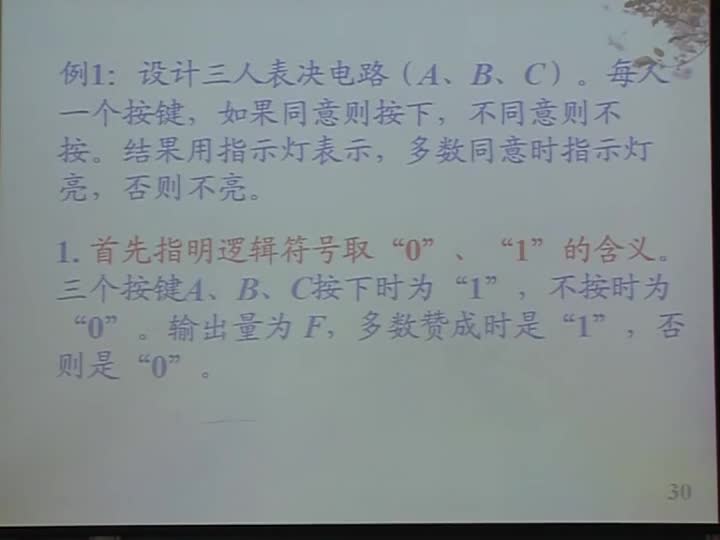 例1：设计三人表决电路（A、B、C）。每人
一个按键，如果同意则按下，不同意则不
按。结果用指示灯表示，多数同意时指示灯
亮，否则不亮。
1. 首先指明逻辑符号取“0”、“1”的含义。
三个按键A、B、C按下时为“1”，不按时为
“0”。输出量为 F，多数赞成时是“1”，否
则是“0”。
30